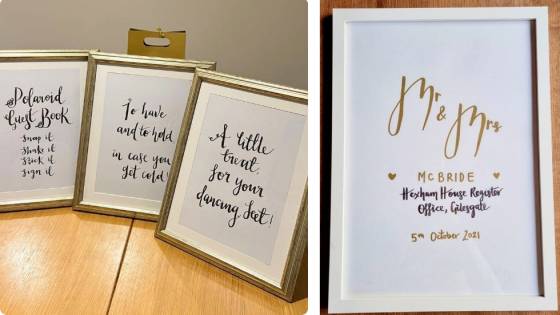 Polaroid
Guest Book
Snap it
Shake it
Stick it
Sign it
To have
and to hold
in case you
get cold!
A little
treat,
for your
dancing feet!
Mr
&
Mrs
MCBRIDE
Hexham House Register
Office, Gilesgate
5th October 2021